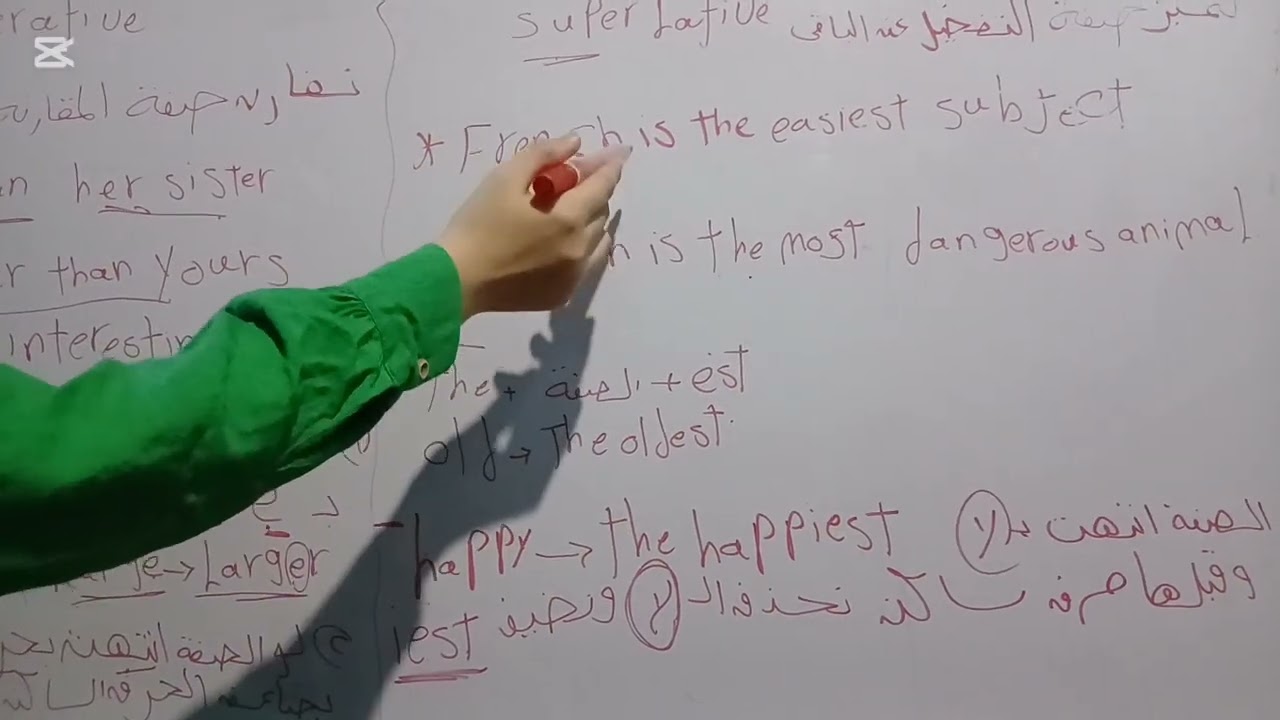 erative
نقارن صيغة المقارنة
her sister
r than yours
interestin
ع
large → Larger
لو الصفة انتهت بحر
superlative
صيغة التفضيل عن الباقي
* French is the easiest subject
h is the most dangerous animal
The + الصفة + est
old → The oldest
- happy → the happiest
الصفة انتهت بـ y
وقبلها حرف ساكن نحذف الـ y ونضيف
iest